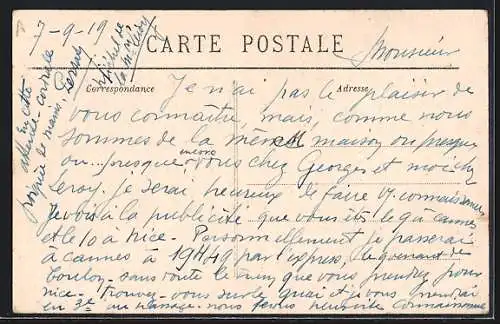 7-9-19
CARTE POSTALE
Monsieur
Correspondance
Adresse
Je n'ai pas le plaisir de
vous connaître, mais, comme nous
sommes de la même maison ou presque
ou... presque vous chez Georges et moi chez
Leroy. je serai heureux de faire v/ connaissance
Je vois à la publicité que vous êts le 9 à Cannes
et le 10 à Nice. Personnellement je passerai
à Cannes à 19H49 par l'express, le
Toulon, sans doute le que vous prendrez pour
Nice. Trouvez-vous sur le quai et je vous
en 3e nous ferons connaissance
En cette
attente cordiale
poignée de mains.